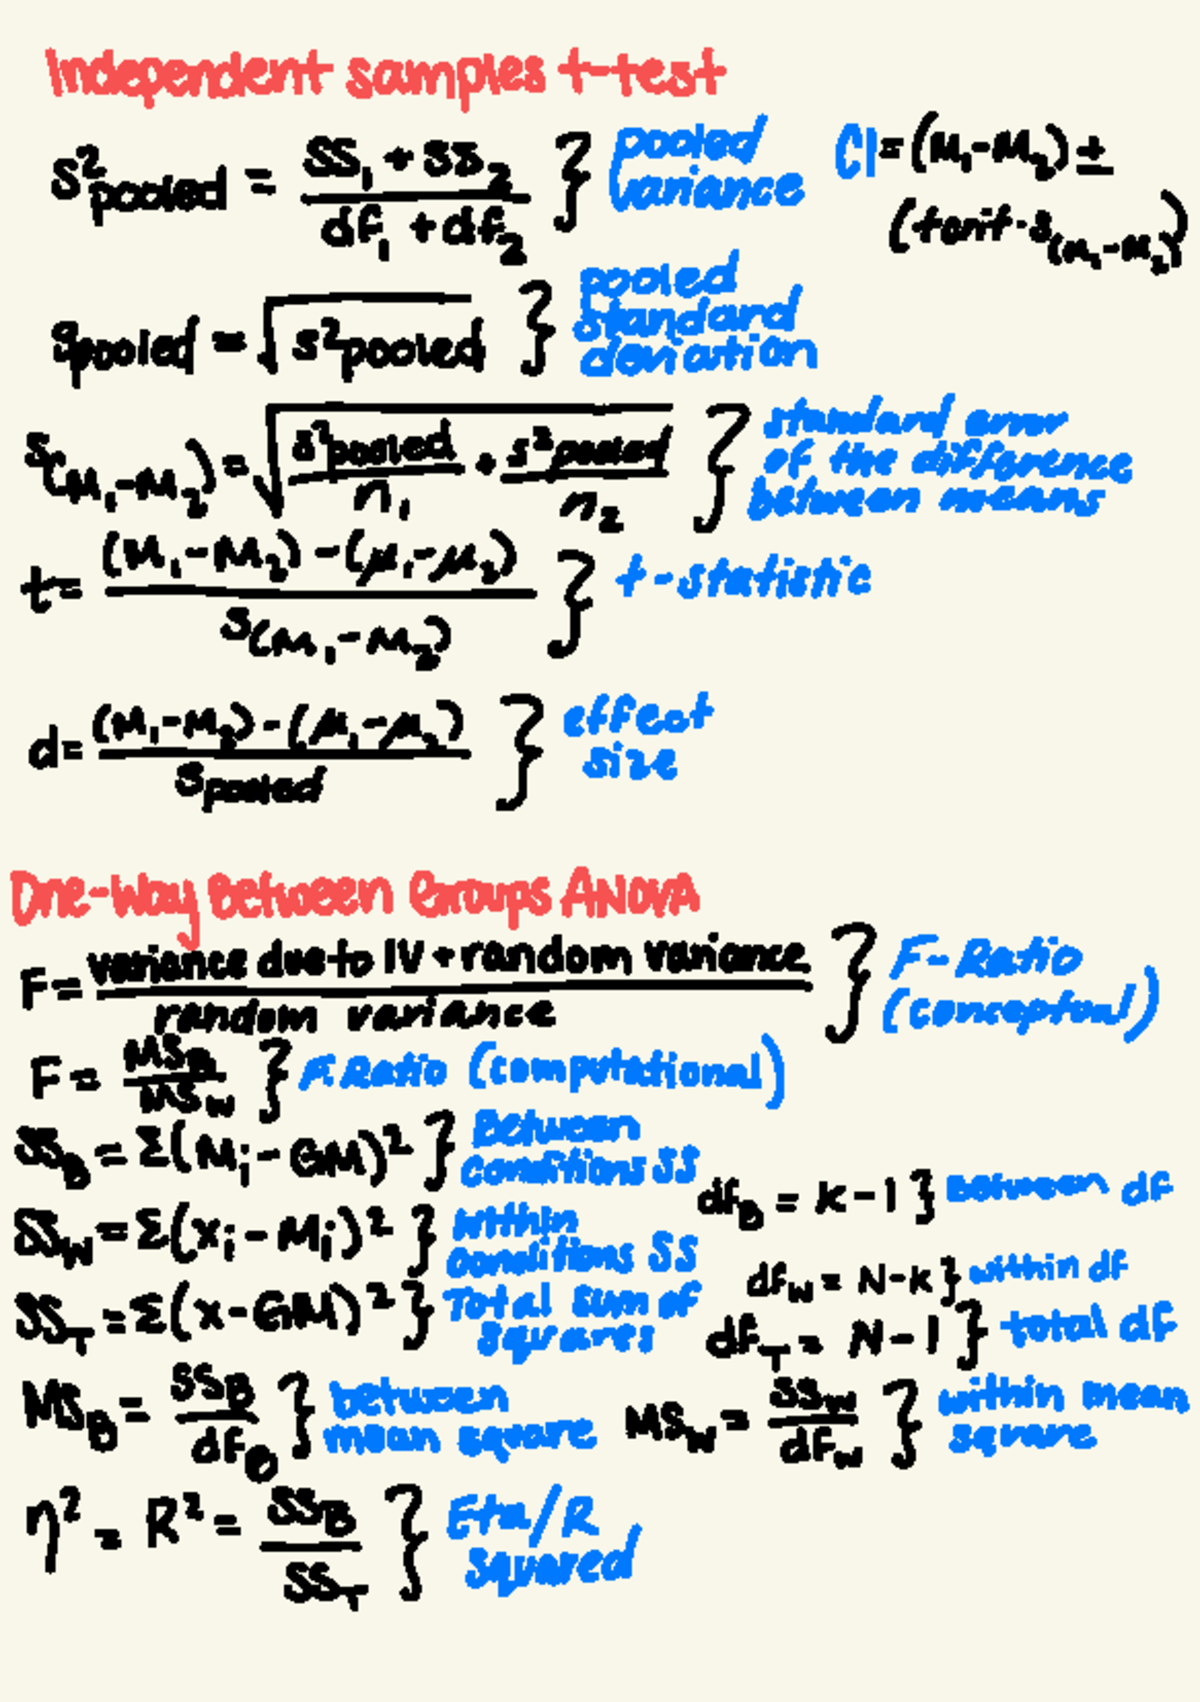 Independent samples t-test
s²pooled = (SS₁ + SS₂) / (df₁ + df₂) } pooled variance
CI = (M₁-M₂) ±
(tcrit · s(M₁-M₂))
spooled = √s²pooled } pooled standard deviation
s(M₁-M₂) = √(s²pooled / n₁ + s²pooled / n₂) } standard error of the difference between means
t = ((M₁-M₂) - (μ₁-μ₂)) / s(M₁-M₂) } t-statistic
d = ((M₁-M₂) - (μ₁-μ₂)) / spooled } effect size
One-Way Between Groups ANOVA
F = (variance due to IV + random variance) / (random variance) } F-Ratio (conceptual)
F = MS_B / MS_W } F-Ratio (computational)
SS_B = Σ(Mᵢ - GM)² } Between conditions SS
df_B = k - 1 } Between df
SS_W = Σ(xᵢ - Mᵢ)² } within conditions SS
df_W = N - k } within df
SS_T = Σ(x - GM)² } Total sum of squares
df_T = N - 1 } total df
MS_B = SS_B / df_B } between mean square
MS_W = SS_W / df_W } within mean square
η² = R² = SS_B / SS_T } Eta/R squared